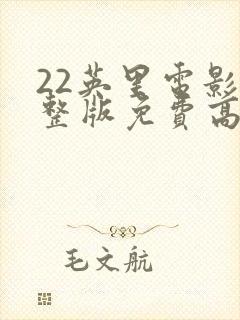 22英里电影
整版免费高
毛文航